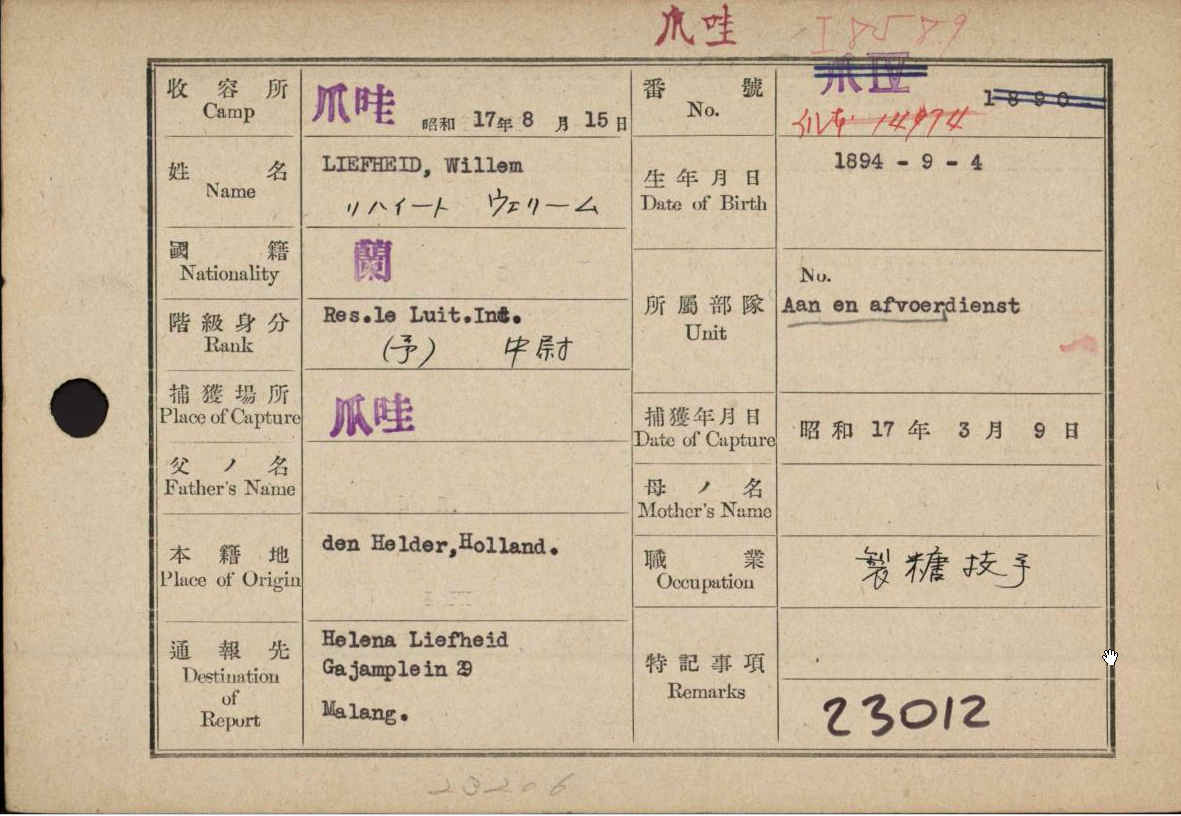 爪哇 I 8589
收容所
Camp
爪哇 昭和 17年 8 月 15日
番號
No.
爪 IV
1890
14974
姓名
Name
LIEFHEID, Willem
リハイート ウェリーム
生年月日
Date of Birth
1894 - 9 - 4
國籍
Nationality
蘭
階級身分
Rank
Res.le Luit.Int.
(予) 中尉
所屬部隊
Unit
No.
Aan en afvoerdienst
捕獲場所
Place of Capture
爪哇
捕獲年月日
Date of Capture
昭和 17 年 3 月 9 日
父ノ名
Father's Name
母ノ名
Mother's Name
本籍地
Place of Origin
den Helder,Holland.
職業
Occupation
製糖技手
通報先
Destination
of
Report
Helena Liefheid
Gajamplein 29
Malang.
特記事項
Remarks
23012
23206